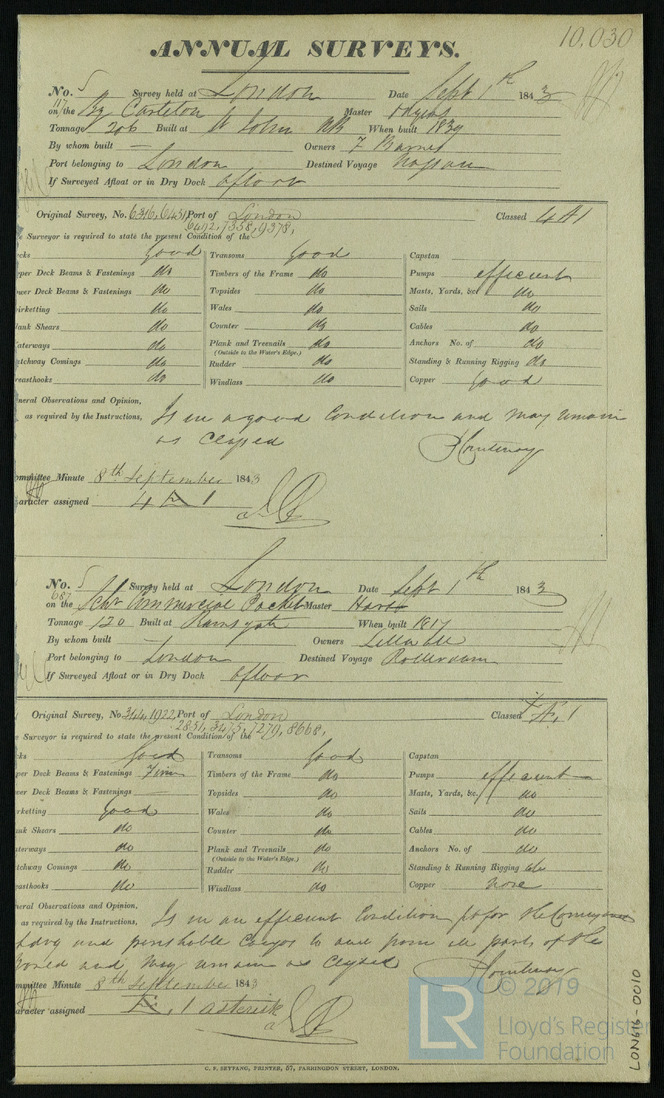 10,030
ANNUAL SURVEYS.
No. 5 Survey held at London Date Sept 1th 1843
117 on the Bg Castleton Master
Tonnage 206 Built at St John NB When built 1839
By whom built — Owners F Barnes
Port belonging to London Destined Voyage Nassau
If Surveyed Afloat or in Dry Dock afloat
Original Survey, No. 6316, 6451 Port of London Classed 4 A 1
6492, 7358, 9378,
e Surveyor is required to state the present Condition of the
cks Good Transoms Good Capstan
pper Deck Beams & Fastenings do Timbers of the Frame do Pumps efficient
ower Deck Beams & Fastenings do Topsides do Masts, Yards, &c. do
irketting do Wales do Sails do
lank Shears do Counter do Cables do
aterways do Plank and Treenails do Anchors No. of do
(Outside to the Water's Edge.)
atchway Comings do Rudder do Standing & Running Rigging do
reasthooks do Windlass do Copper good
neral Observations and Opinion,
as required by the Instructions, Is in a good Condition and may remain
as Classed
ommittee Minute 8th September 1843
aracter assigned 4 A 1
No. 5 Survey held at London Date Sept 1th 1843
687 on the Schr Commercial Packet Master Hart
Tonnage 120 Built at Ramsgate When built 1817
By whom built — Owners
Port belonging to London Destined Voyage Rotterdam
If Surveyed Afloat or in Dry Dock afloat
Original Survey, No. 344, 1922 Port of London Classed * Æ, 1
2851, 3475, 7279, 8668,
e Surveyor is required to state the present Condition of the
cks Good Transoms Good Capstan
per Deck Beams & Fastenings Firm Timbers of the Frame do Pumps efficient
wer Deck Beams & Fastenings Topsides do Masts, Yards, &c. do
rketting Good Wales do Sails do
ank Shears do Counter do Cables do
terways do Plank and Treenails do Anchors No. of do
(Outside to the Water's Edge.)
tchway Comings do Rudder do Standing & Running Rigging do
easthooks do Windlass do Copper none
neral Observations and Opinion,
as required by the Instructions, Is in an efficient Condition fit for the Conveyance
of dry and perishable Cargos to and from all parts of the
World and may remain as Classed
mmittee Minute 8th September 1843
aracter assigned Æ, 1 asterisk
C. F. SEYFANG, PRINTER, 57, FARRINGDON STREET, LONDON.
LON616-0010
LR
© 2019
Lloyd's Register
Foundation